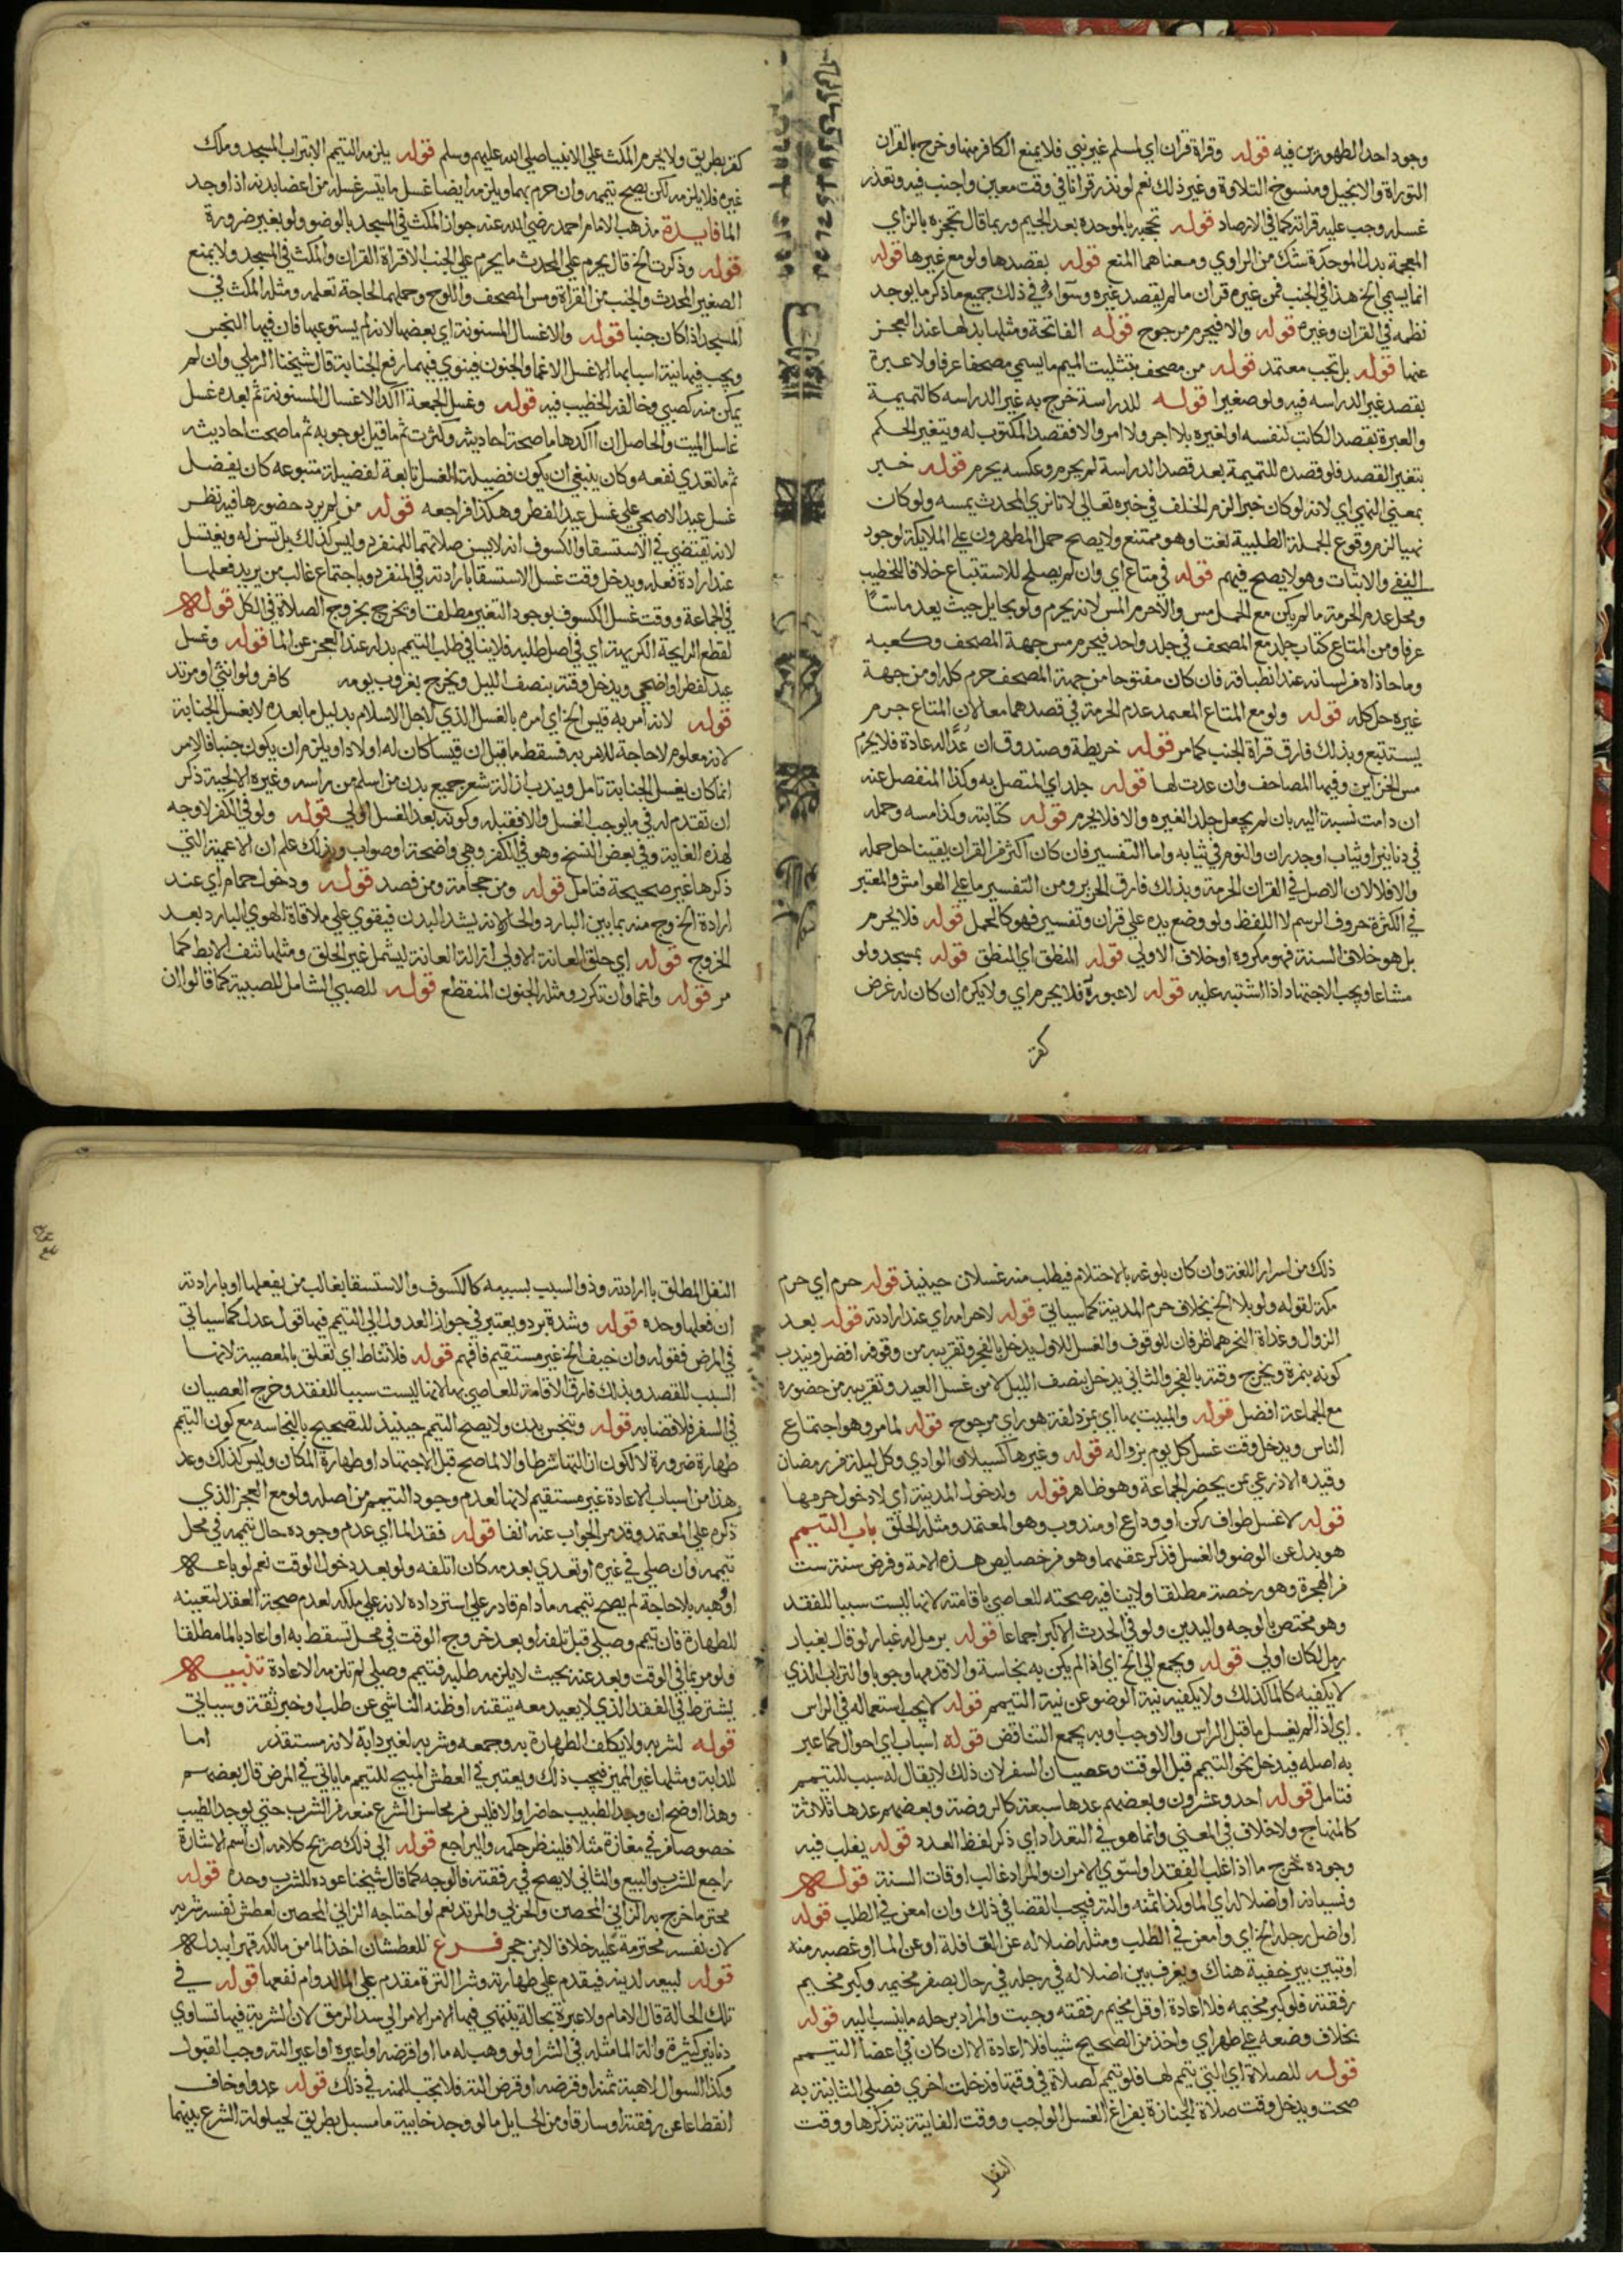 وجود احد الطهورين فيه قوله وقراة قران اي لمسلم غير نبي فلا يمنع الكافر منها وخرج بالقران
التوراة والانجيل ومنسوخ التلاوة وغير ذلك نعم لو نذر قرانا في وقت معين واجنب فيه وتعذر
غسله وجب عليه قراته كما في الارصاد قوله تحجبه بالموحدة بعد الجيم وربما قال تحجزه بالزاي
المعجمة بدل الموحدة شك من الراوي ومعناهما المنع قوله بقصدها ولو مع غيرها قوله
انما يسمي الخ هذا في الجنب فمن غيره قران ما لم يقصد غيره وسواء في ذلك جميع ما ذكر ما يوجد
نظمه في القران وغيره قوله والا فيحرم مرجوح قوله الفاتحة ومثلها بدلها عند العجز
عنها قوله بل تجب معتمد قوله من مصحف بتثليت الميم ما يسمي مصحفا عرفا ولا عبرة
بقصد غير الدراسه فيه ولو صغيرا قوله للدراسة خرج به غير الدراسه كالتميمة
والعبرة بقصد الكاتب لنفسه او لغيره بلا اجر ولا امر والا فقصد المكتوب له ويتغير الحكم
بتغير القصد فلو قصده للتميمة بعد قصد الدراسة لم يحرم وعكسه يحرم قوله خبر
بمعني النهي اي لانه لو كان خبرا لزم الخلف في خبره تعالي لانا نري المحدث يمسه ولو كان
نهيا لزم وقوع الجملة الطلبية نعتا وهو ممتنع ولا يصح حمل المطهرون علي الملايكة لوجود
النفي والاثبات وهو لا يصح فيهم قوله في متاع اي وان لم يصلح للاستتباع خلافا للخطيب
ومحل عدم الحرمة ما لم يكن مع الحمل مس والا حرم المس لانه يحرم ولو بحايل حيث يعد ماسا
عرفا ومن المتاع كتاب جلد مع المصحف في جلد واحد فيحرم مس جهة المصحف وكعبه
وما حاذاه من لسانه عند انطباقه فان كان مفتوحا من جهة المصحف حرم كله او من جهة
غيره حل كله قوله ولو مع المتاع المعتمد عدم الحرمة في قصدهما معا لان المتاع جرم
يستتبع وبذلك فارق قراة الجنب كما مر قوله خريطة وصندوق ان عدا له عادة فلا يحرم
مس الخزاين وفيها المصاحف وان عدت لها قوله جلد اي المتصل به وكذا المنفصل عنه
ان دامت نسبة اليه بان لم يجعل جلد الغيره والا فلا يحرم قوله كتابته وكذا مسه وحمله
في دنانير او ثياب او جدران والنوم في ثيابه واما التفسير فان كان اكثر من القران يقينا حل حمله
والا فلا لان الاصل في القران الحرمة وبذلك فارق الحرير ومن التفسير ما علي الهوامش والمعتبر
في الكثرة حروف الرسم لا اللفظ ولو وضع يده علي قران وتفسير فهو كالحمل قوله فلا يحرم
بل هو خلاف السنة فهو مكروه او خلاف الاولي قوله النطق اي المنطق قوله بمسجد ولو
مشاعا ويجب الاجتهاد اذا اشتبه عليه قوله لا عبوره فلا يحرم اي ولا يكره ان كان له غرض
كغر
كغر بطريق ولا يحرم المكث علي الانبيا صلي الله عليهم وسلم قوله يلزمه التيمم الا بتراب المسجد وملك
غيره فلا يلزمه لكن يصح تيممه وان حرم بهما ويلزمه ايضا غسل ما تيسر غسله من اعضا بدنه اذا وجد
الما فايدة مذهب الامام احمد رضي الله عنه جواز المكث في المسجد بالوضو ولو بغير ضرورة
قوله وذكرت الخ قال يحرم علي المحدث ما يحرم علي الجنب الا قراة القران والمكث في المسجد ولا يمنع
الصغير المحدث والجنب من القراة ومس المصحف واللوح وحملهما لحاجة تعلمه ومثله المكث في
المسجد اذا كان جنبا قوله والاغسال المسنونة اي بعضها لانه لم يستوعبها فان فيها النجس
ويجب فيها نية اسبابها الا غسل الاغما والجنون فينوي فيهما رفع الجنابة قال شيخنا الرملي وان لم
يمكن منه كصبي وخالفه الخطيب فيه قوله وغسل الجمعة اكد الاغسال المسنونة ثم بعده غسل
غاسل الميت والحاصل ان اكدها ما صحت احاديثه وكثرت ثم ما قيل بوجوبه ثم ما صحت احاديثه
ثم ما تعدي نفعه وكان ينبغي ان يكون فضيلة الغسل تابعة لفضيلة متبوعه كان يفضل
غسل عيد الاضحي علي غسل عيد الفطر وهكذا فراجعه قوله من لم يرد حضورها فيه نظر
لانه يقتضي في الاستسقا والكسوف انه لا يسن صلاتهما للمنفرد وليس كذلك بل تسن له ويغتسل
عند ارادة فعله ويدخل وقت غسل الاستسقا بارادته في المنفرد وباجتماع غالب من يريد فعلها
في الجماعة ووقت غسل الكسوف بوجود التغير مطلقا ويخرج بخروج الصلاة في الكل قوله
لقطع الرايحة الكريهة اي في اصل طلبه فلا ينافي طلب التيمم بدله عند العجز عن الما قوله وغسل
عيد لفطر او اضحي ويدخل وقته بنصف الليل ويخرج بغروب يومه كافر ولو انثي او مرتد
قوله لانه امر به قيس الخ اي امره بالغسل الذي لاجل الاسلام بدليل ما بعده لا بغسل الجنابة
لانه معلوم لا حاجة للامر به فسقط ما قيل ان قيسا كان له اولاد او يلزم ان يكون جنبا فالامر
انما كان بغسل الجنابة تامل ويندب ازالة شعر جميع بدن من اسلم من راسه وغيره الا لحية ذكر
ان تقدم له في ما يوجب الغسل والا فقبله وكونه بعد الغسل اولي قوله ولو في الكفر لا وجه
لهذه الغاية وفي بعض النسخ وهو في الكفر وهي واضحة او صواب وبذلك علم ان الاعمية التي
ذكرها غير صحيحة فتامل قوله ومن حجامة ومن فصد قوله ودخول حمام اي عند
ارادة الخروج منه بما بين البارد والحار لانه يشد البدن فيقوي علي ملاقاة الهوي البارد بعد
الخروج قوله اي حلق العانة الاولي ازالة العانة ليشمل غير الحلق ومثلها نتف الابط كما
مر قوله واغما وان تكرر ومثله الجنون المنقطع قوله للصبي الشامل للصبية كما قالوا ان
ذلك من اسرار اللغة وان كان بلوغه بالاحتلام فيطلب منه غسلان حينيذ قوله حرم اي حرم
مكة لقوله ولو بلا الخ بخلاف حرم المدينة كما سياتي قوله لاحرامه اي عند ارادته قوله بعد
الزوال وغداة النحر هما ظرفان للوقوف والغسل للاول يدخل بالفجر وتقريبه من وقوفه افضل ويندب
كونه بنمرة ويخرج وقته بالفجر والثاني يدخل بنصف الليل لا من غسل العيد وتقريبه من حضوره
مع الجماعة افضل قوله والمبيت بها اي بمزدلفة هو راي مرجوح قوله لما مر وهو اجتماع
الناس ويدخل وقت غسل كل يوم بزواله قوله وغيرها كسيلان الوادي وكل ليلة من رمضان
وقيده الاذرعي بمن يحضر الجماعة وهو ظاهر قوله ولدخول المدينة اي لا دخول حرمها
قوله لا غسل طواف ركن او وداع او مندوب وهو المعتمد ومثله الحلق باب التيمم
هو بدل عن الوضو والغسل فذكر عقبهما وهو من خصايص هذه الامة وفرض سنة ست
من الهجرة وهو رخصة مطلقا ولا ينافيه صحته للعاصي باقامته لانها ليست سببا للفقد
وهو مختص بالوجه واليدين ولو في الحدث الاكبر اجماعا قوله برمل له غبار لو قال بغبار
رمل لكان اولي قوله ويجمع الي الخ اي اذا لم يكن به نجاسة والا قدمها وجوبا والتراب الذي
لا يكفيه كالما كذلك ولا يكفيه نية الوضو عن نية التيمم قوله لا يجب استعماله في الراس
اي اذا لم يغسل ما قبل الراس والا وجب او به يجمع التناقض قوله اسباب اي احوال كما عبر
به اصله فيدخل نحو التيمم قبل الوقت وعصيان السفر لان ذلك لا يقال له سبب للتيمم
فتامل قوله احد وعشرون وبعضهم عدها سبعة كالروضة وبعضهم عدها ثلاثة
كالمنهاج ولا خلاف في المعني وانما هو في التعداد اي ذكر لفظ العدد قوله يغلب فيه
وجوده خرج ما اذا غلب الفقد او استوي الامران والمراد غالب اوقات السنة قوله
ونسيانه او اضلاله اي الما وكذا ثمنه والته فيجب القضا في ذلك وان امعن في الطلب قوله
او اضل رحله الخ اي وامعن في الطلب ومثله اضلاله عن القافلة او عن الما او غصبه منه
او تبين بير خفية هناك ويفرق بين اضلاله في رحله في رحال بصغر مخيمه وكبر مخيم
رفقته فلو كبر مخيمه فلا اعادة او قل مخيم رفقته وجبت والمراد برحله ما ينسب اليه قوله
بخلاف وضعه علي طهر اي واخذ من الصحيح شيا فلا اعادة الا ان كان في اعضا التيمم
قوله للصلاة اي التي تيمم لها فلو تيمم لصلاة في وقتها فدخلت اخري فصلي الثانية به
صحت ويدخل وقت صلاة الجنازة بفراغ الغسل الواجب ووقت الفايتة بتذكرها ووقت
النفل
النفل المطلق بارادته وذو السبب بسببه كالكسوف والاستسقا بغالب من يفعلها او بارادته
ان فعلها وحده قوله وشدة برد ويعتبر في جواز العدول الي التيمم فيها قول عدل كما سياتي
في المرض فقوله وان خيف الخ غير مستقيم فافهم قوله فلا تناط اي تعلق بالمعصية لانها
السبب للقصد وبذلك فارق الاقامة للعاصي بها لانها ليست سببا للفقد وخرج العصيان
في السفر فلا قضا به قوله وتنجس بدن ولا يصح التيمم حينيذ للتصحيح بالنجاسه مع كون التيمم
طهارة ضرورة لا لكون ازالتها شرطا والا لما صح قبل الاجتهاد او طهارة المكان وليس كذلك وعد
هذا من اسباب الاعادة غير مستقيم لانها لعدم وجود التيمم من اصله ولو مع العجز الذي
ذكره علي المعتمد وقد مر الجواب عنه انفا قوله فقد الما اي عدم وجوده حال تيممه في محل
تيممه وان صلي في غيره او تعدي بعدمه كان اتلفه ولو بعد دخول الوقت نعم لو باعه
او وهبه بلا حاجة لم يصح تيممه ما دام قادر علي استرداده لانه علي ملكه لعدم صحة العقد لتعينه
للطهارة فان تيمم وصلي قبل تلفه او بعد خروج الوقت في محل تسقط به او اعاد بالما مطلقا
ولو مر بما في الوقت وبعد عنه بحيث لا يلزمه طلبه فتيمم وصلي لم تلزمه الاعادة تنبيه
يشترط في الفقد الذي لا يعيد معه تيقنه او ظنه الناشي عن طلب او خبر ثقة وسياتي
قوله لشربه ولا يكلف الطهارة به وجمعه وشربه لغير دابة لانه مستقذر اما
للدابة ومثلها غير المميز فيجب ذلك ويعتبر في العطش المبيح للتيمم ما ياتي في المرض قال بعضهم
وهذا اوضح ان وجد الطبيب حاضرا والا فليس من محاسن الشرع منعه من الشرب حتي يوجد الطبيب
خصوصا من في مغازة مثلا فلينظر حكمه وليراجع قوله الي ذلك صريح كلامه ان اسم الاشارة
راجع للشرب والبيع والثاني لا يصح في رفقته فالوجه كما قال شيخنا عوده للشرب وحده قوله
محترما خرج به الزاني المحصن والحربي والمرتد نعم لو احتاجه الزاني المحصن لعطش نفسه شربه
لان نفسه محترمة عليه خلافا لابن حجر فرع للعطشان اخذ الما من مالكه قهرا ببدله
قوله لبيعه لدينه فيقدم علي طهارته وشرا الترة مقدم علي الما لدوام نفعها قوله في
تلك الحالة قال الامام ولا عبرة بحالة ينتهي فيها الامر الي سد الرمق لان الشربة فيها تساوي
دنانير كثيرة والة الما مثله في الشرا ولو وهب له ما او اقرضه او اعيره او اعير الته وجب القبول
وكذا السوال لا هبة ثمنه او قرضه او قرض الته فلا يجب للمنة في ذلك قوله عدوا وخاف
انقطاعا عن رفقته او سارقا ومن الحايل ما لو وجد خابية ما مسبل بطريق لحيلولة الشرع بينهما